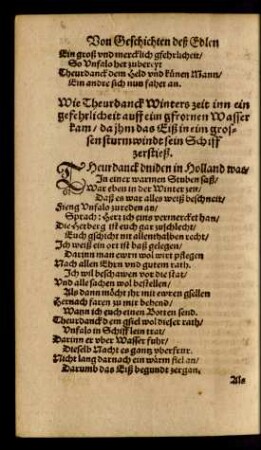 Von Geschichten deß Edlen
Ein groß vnd mercklich gfehrlicheit/
So Vnfalo her zubereyt
Theurdanck dem Held vnd künen Mann/
Ein andre sich nun fahet an.
Wie Theurdanck Winters zeit inn ein
gefehrlicheit auff eim gfrornen Wasser
kam/ da jhm das Eiß in eim gros-
sen sturmwindt sein Schiff
zerstieß.
THeurdanck dniden in Holland was/
In einer warmen Stuben saß/
War eben in der Winter zen/
Daß es war alles weiß beschneit/
Fieng Vnfalo zu reden an/
Sprach: Herz ich eins vermercket han/
Die Herberg ist euch gar zuschlecht/
Euch gschicht nit allenthalben recht/
Ich weiß ein ort ist baß gelegen/
Darinn man ewrn wol wirt pflegen
Nach allen Ehrn vnd gutem rath.
Ich wil beschawen vor die stat/
Vnd alle sachen wol bestellen/
Als dann möcht ihr mit ewren gsellen
Hernach faren zu mir behend/
Wann ich euch einen Botten send.
Theurdanck dem gfiel wol dieser rath/
Vnfalo in Schifflein trat/
Darinn er vber Wasser fuhr/
Dieselb Nacht es gantz vberfrur.
Nicht lang darnach ein wärm fiel an/
Darumb das Eiß begundt zergan.
Als